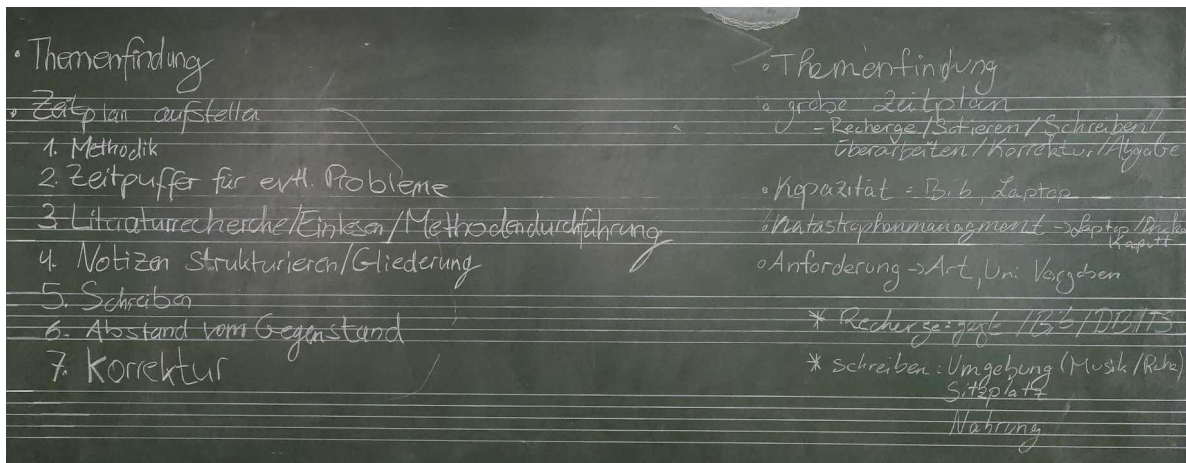 • Themenfindung
• Zeitplan aufstellen
1. Methodik
2. Zeitpuffer für evtl. Probleme
3. Literaturrecherche/Einlesen/Methodendurchführung
4. Notizen strukturieren/Gliederung
5. Schreiben
6. Abstand vom Gegenstand
7. Korrektur
• Themenfindung
• grobe Zeitplan
- Recherge/Sotieren/Schreiben/
überarbeiten/Korrektur/Abgabe
• Kapazität = Bib, Laptop
• Katastrophenmanagment -> Laptop/
Kaputt
• Anforderung -> Art, Uni Vorgaben
* Recherge: /Bib/
* schreiben: Umgebung (Musik/Ruhe)
Sitzplatz
Nahrung